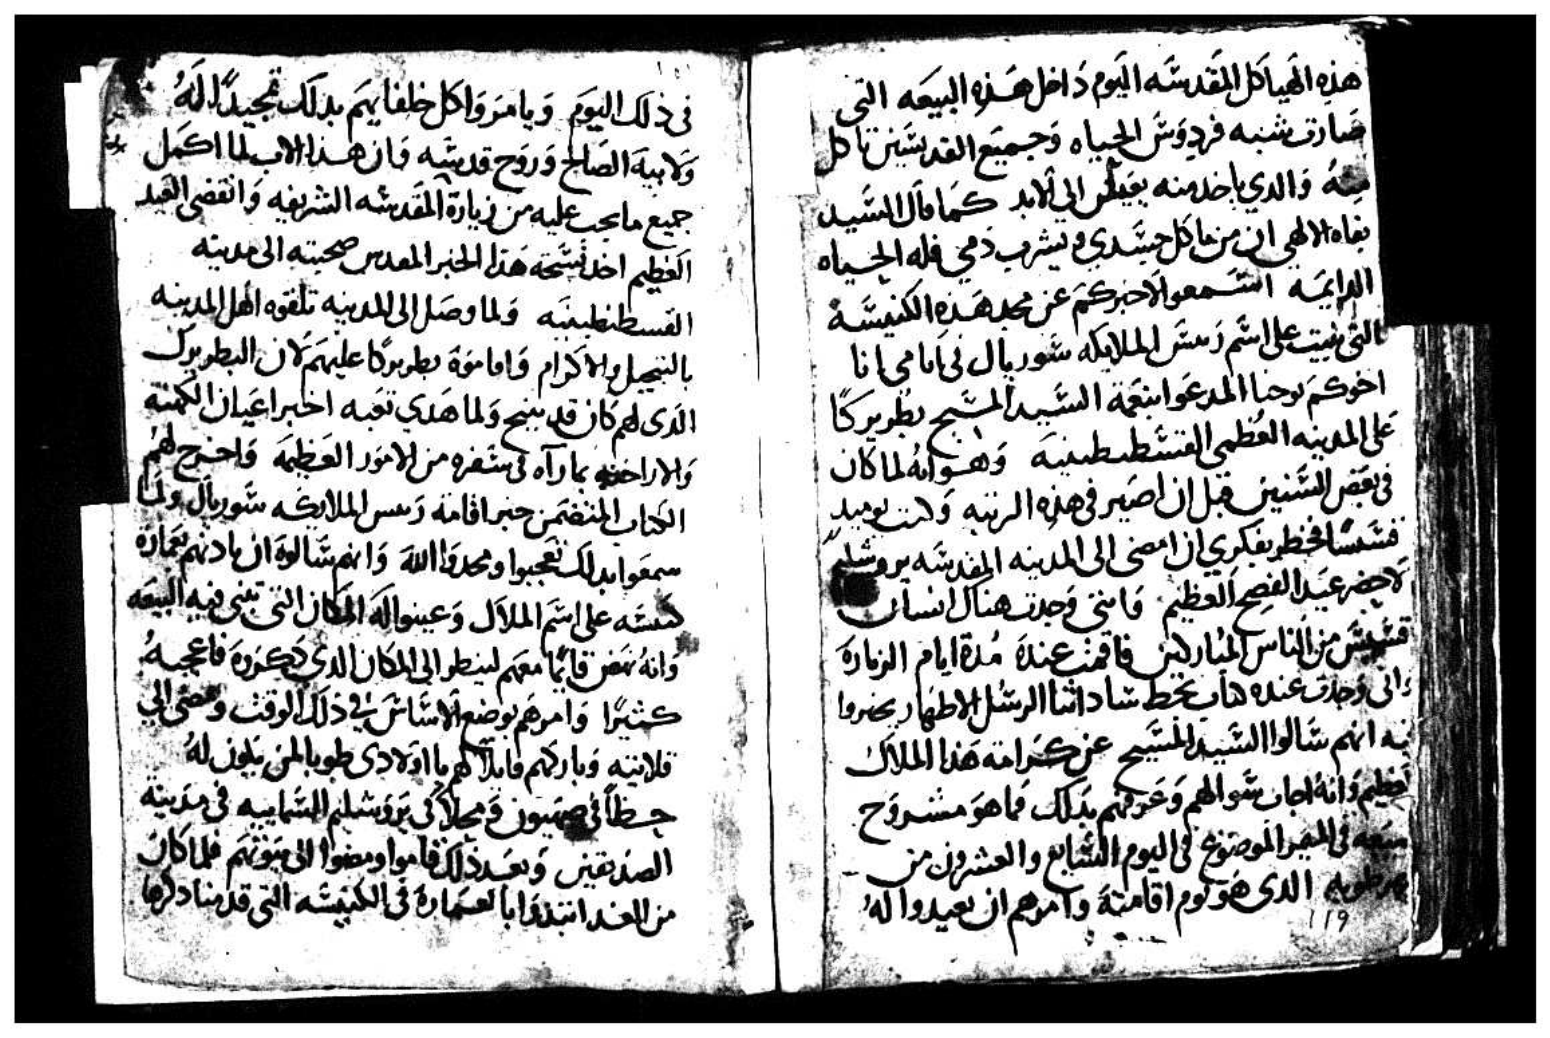 هذه الهياكل المقدسه اليوم داخل هذه البيعه التي
صارت شبه فردوس الحياه وجميع القديسين تاكل
منه والدي ياخد منه يعيش الي الابد كما قال السيد
بفاه الالهي ان من ياكل جسدي ويشرب دمي فله الحياه
الدايمه استمعوا لاخبركم عن مجد هذه الكنيسه
التي بنيت علي اسم رييس الملايكه سوريال في ايامي انا
اخوكم يوحنا المدعوا بنعمة السيد المسيح بطريركا
علي المدينه العظمي القسطنطينيه وهو انه لما كان
في بعض السنين قبل ان اصير في هذه الرتبه وكنت يوميد
قسيسا فخطر بفكري ان امضي الي المدينه المقدسه يروشليم
لاحضر عيد الفصح العظيم وانني وجدت هناك انسان
قسيس من الناس المباركين فاقمت عنده مدة ايام الزياره
واني وجدت عنده كتاب بخط ساداتنا الرسل الاطهار يخبروا
فيه انهم سالوا السيد المسيح عن كرامة هذا الملاك
العظيم وانه اجاب سوالهم وعرفهم بدلك كما هو مشروح
في الموضوع في اليوم السابع والعشرون من
طوبه الدي هو يوم اقامته وامرهم ان يعيدوا له
١١٩
في ذلك اليوم ويامروا كل خلفايهم بدلك تمجيدا له
ولابيه الصالح وروح قدسه وان هذا الاب لما اكمل
جميع ما يجب عليه من زيارة المقدسه الشريفه وانقضي العيد
العظيم اخد نسخة هذا الخبر المقدس صحبته الي مدينه
القسطنطينيه ولما وصل الي المدينه تلقوه اهل المدينه
بالتبجيل والاكرام واقاموه بطريركا عليهم لان البطريرك
الدي لهم كان قد تنيح ولما هدي تعبه اخبر اعيان الكهنه
والاراخنه بما رآه في سفره من الامور العظيمه واخرج لهم
الكتاب المتضمن خبر اقامة رييس الملايكه سوريال ولما
سمعوا بدلك تعجبوا ومجدوا الله وانهم سالوه ان يادنهم بعمارة
كنيسه علي اسم الملاك وعينوا له المكان التي تبني فيه البيعه
وانه نهض قايما معهم لينظر الي المكان الدي دكروه فاعجبه
كثيرا وامرهم بوضع الاساس في ذلك الوقت ومضي الي
قلايته وباركهم قايلا لهم يا اولادي طوبا لمن يكون له
حظا في صهيون ومحلا في يروشليم السماييه في مدينة
الصديقين وبعد ذلك قاموا ومضوا الي بيوتهم فلما كان
من الغد ابتدوا بالعماره في الكنيسه التي قدمنا دكرها